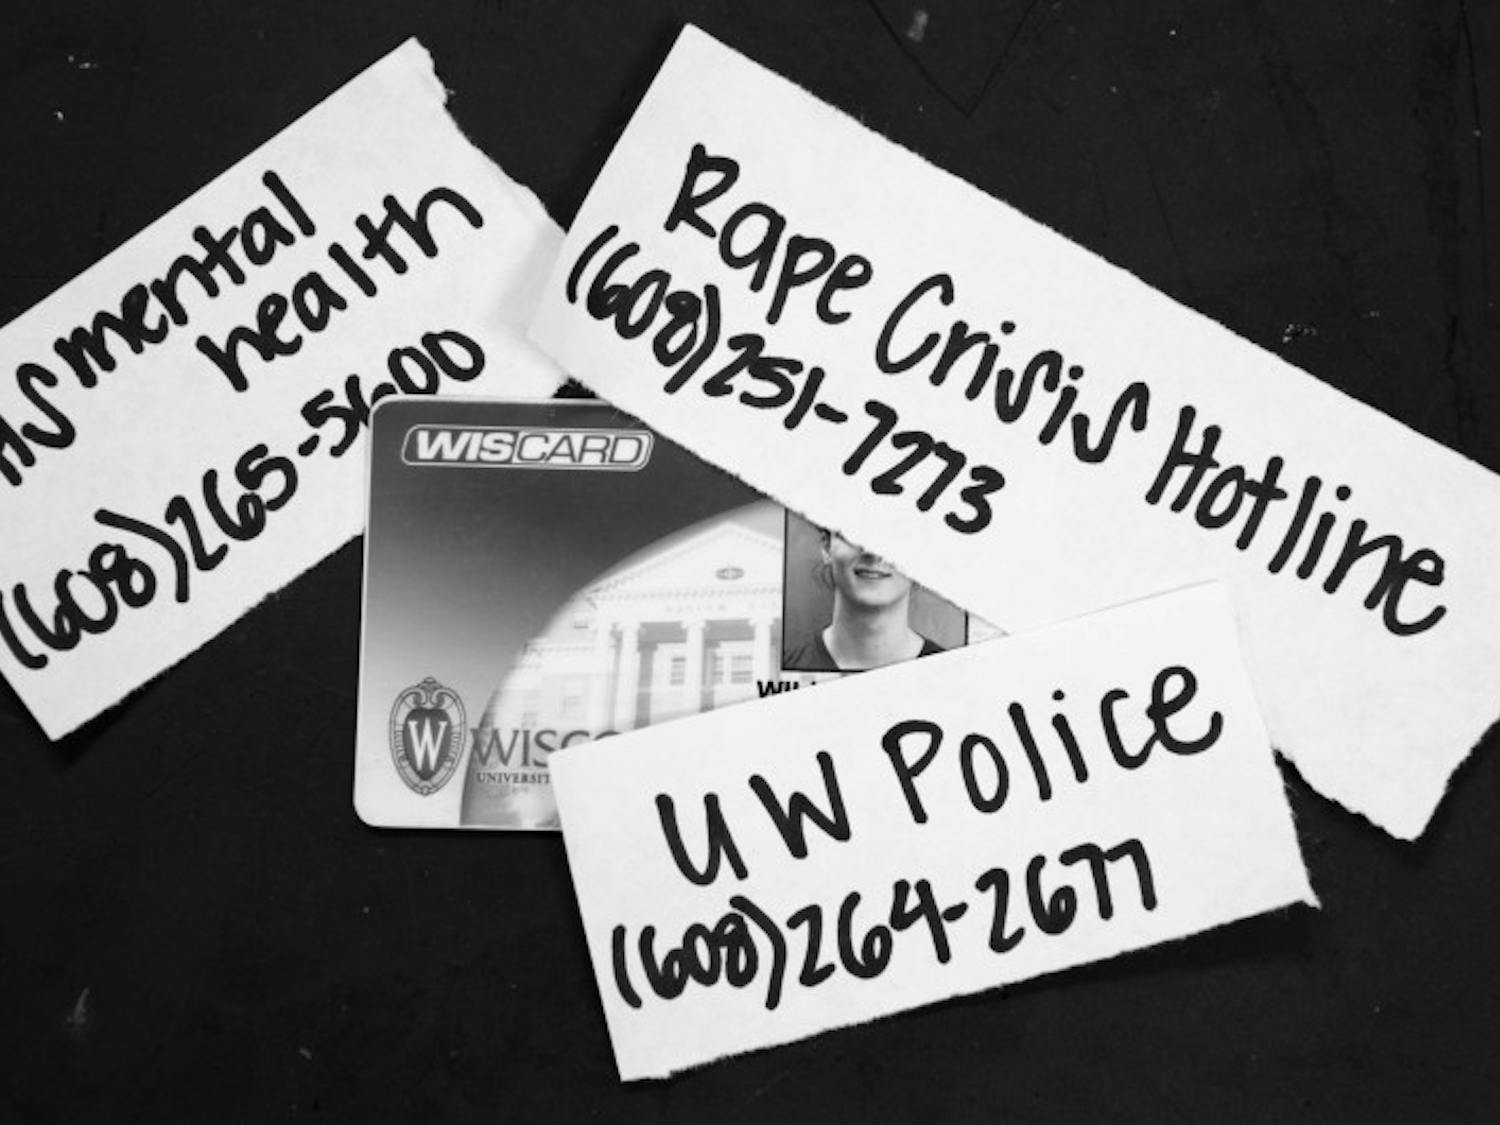 HS mental
health
(608)265-5600
Rape Crisis Hotline
(608)251-7273
WISCARD
W
UNIVERSIT
UW Police
(608)264-2677